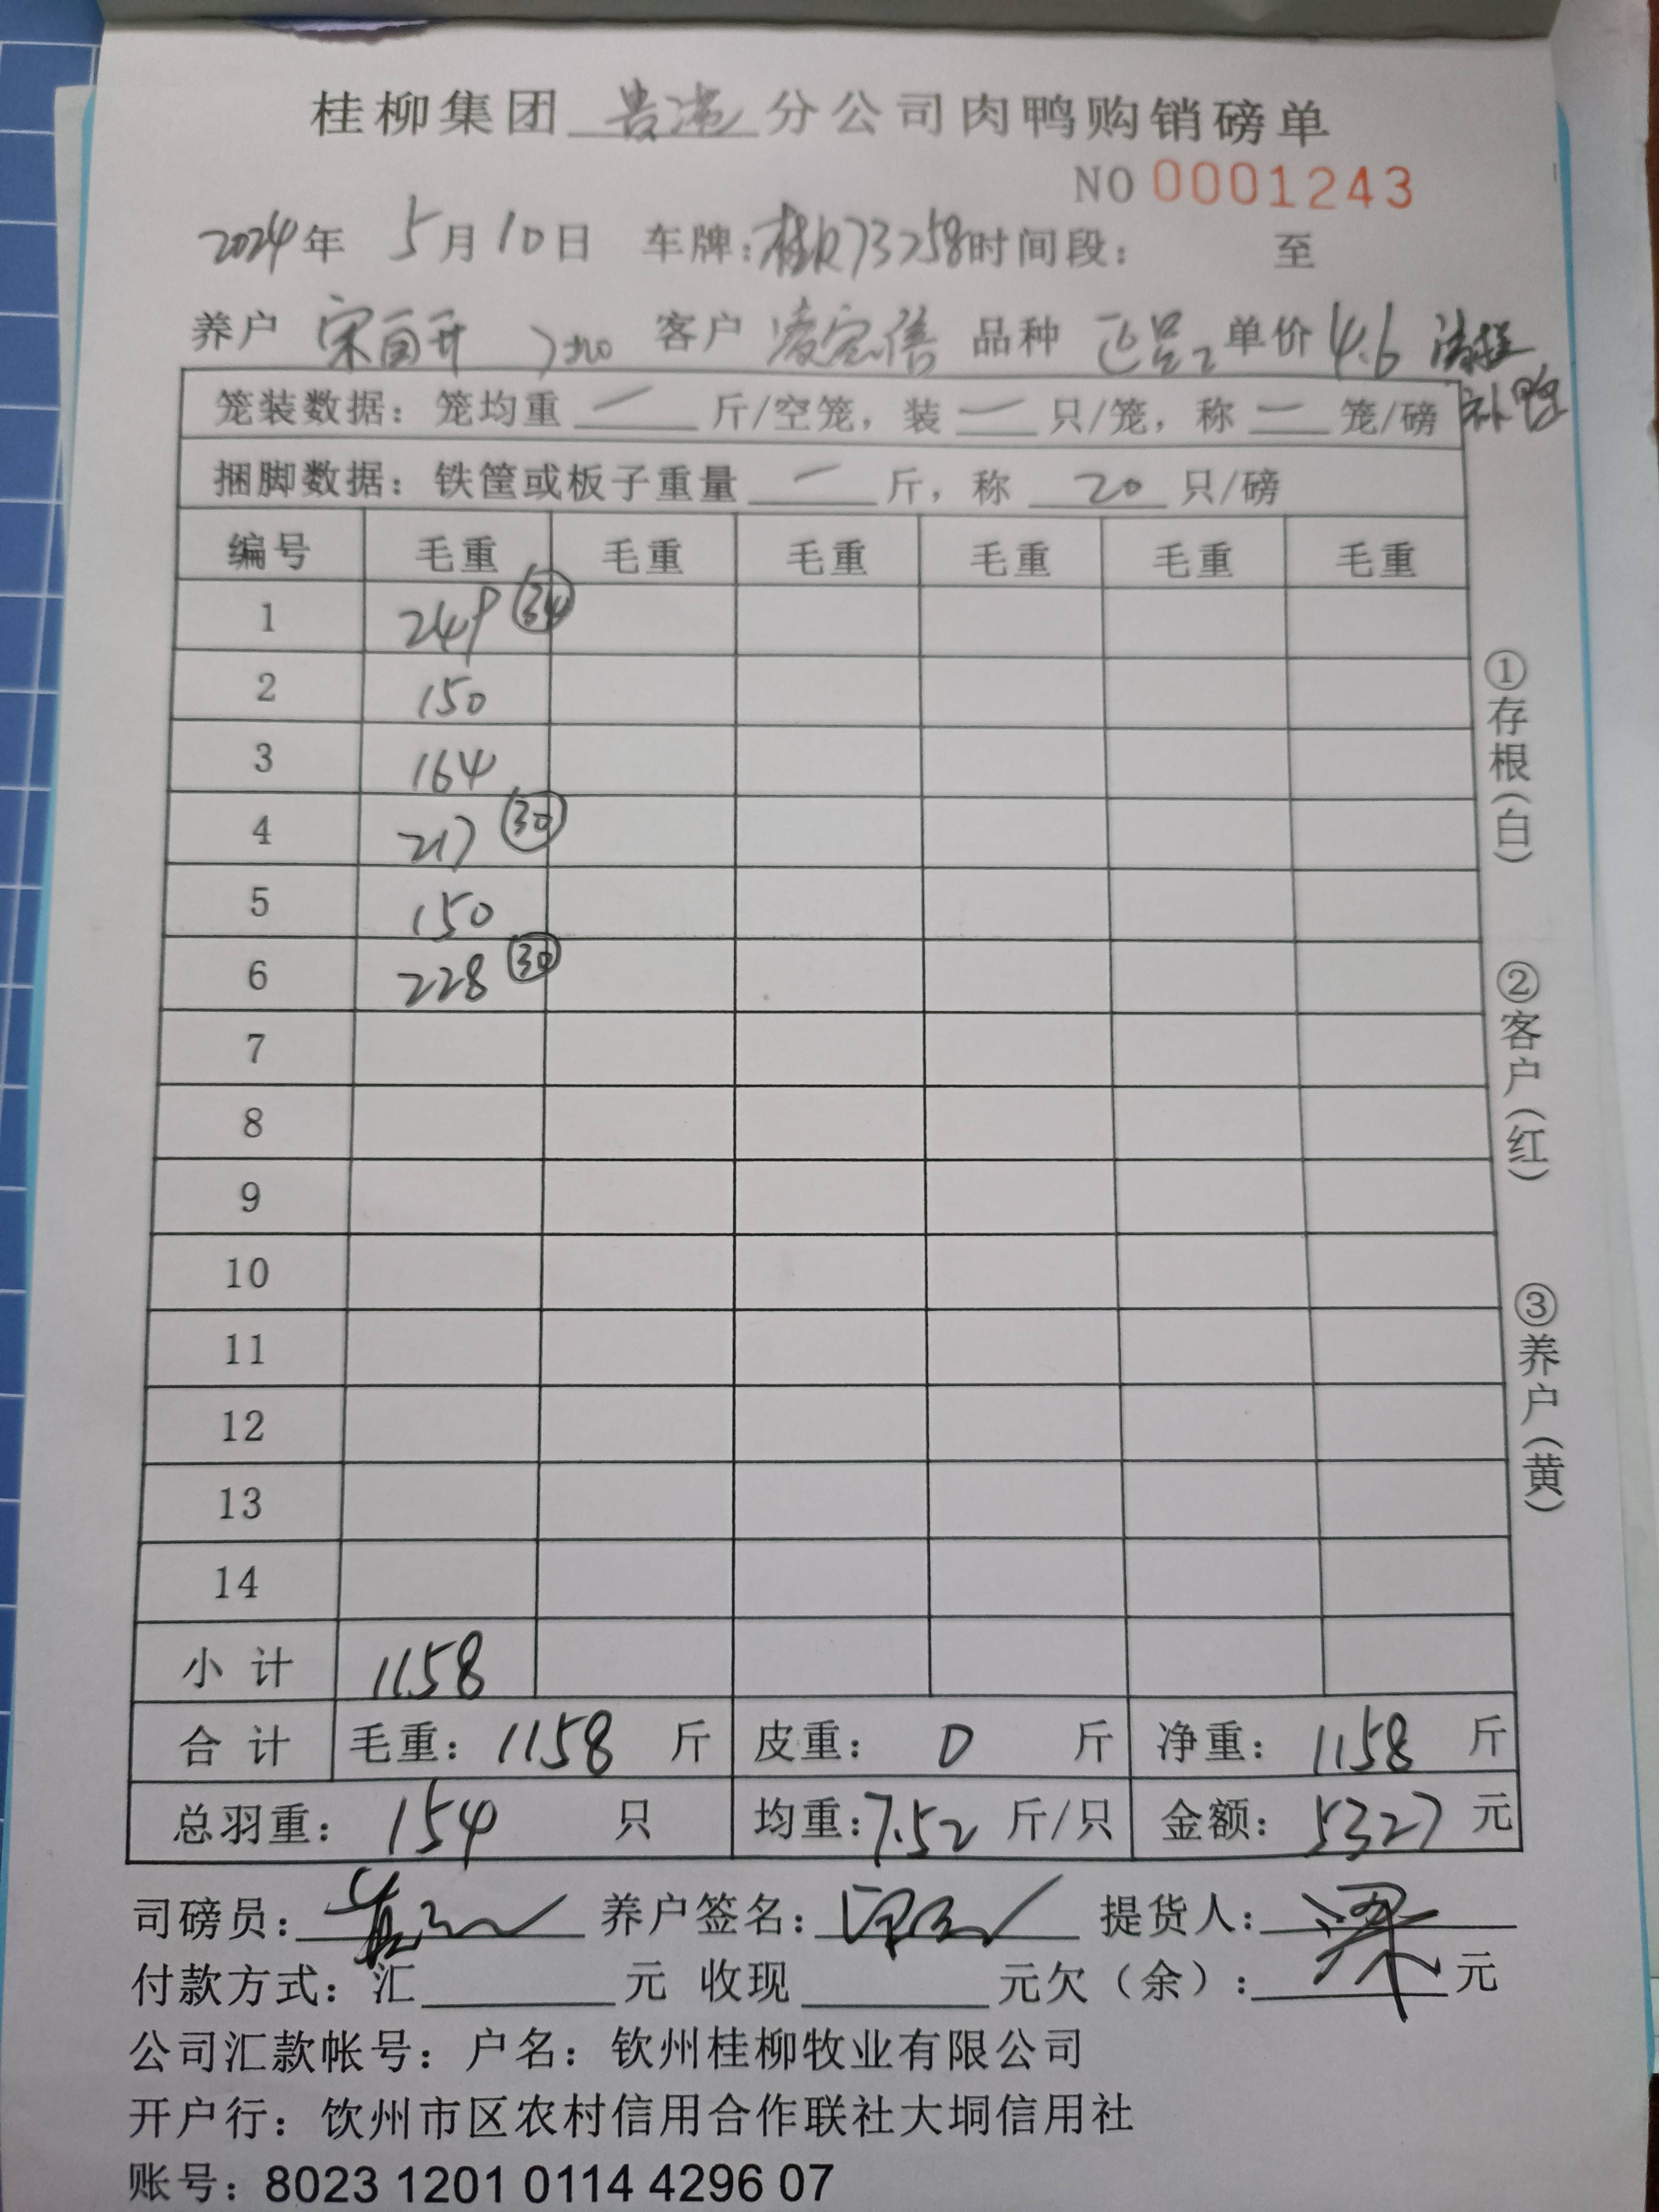 桂柳集团 贵港 分公司肉鸭购销磅单
NO 0001243
2024年 5月10日 车牌:桂K73258时间段: 至
养户 客户 凌宏信 品种 单价 4.6 清栏
补鸭
笼装数据: 笼均重 一 斤/空笼, 装 一 只/笼, 称 一 笼/磅
捆脚数据: 铁筐或板子重量 一 斤, 称 20 只/磅
编号 毛重 毛重 毛重 毛重 毛重 毛重
1 249 34
2 150
3 164
4 217 30
5 150
6 228 30
7
8
9
10
11
12
13
14
小计 1158
合计 毛重: 1158 斤 皮重: 0 斤 净重: 1158 斤
总羽重: 154 只 均重:7.52 斤/只 金额: 5327 元
司磅员: 养户签名: 提货人: 梁
付款方式: 汇 元 收现 元欠(余): 元
公司汇款帐号: 户名: 钦州桂柳牧业有限公司
开户行: 饮州市区农村信用合作联社大垌信用社
账号: 8023 1201 0114 4296 07
①存根(白)
②客户(红)
③养户(黄)